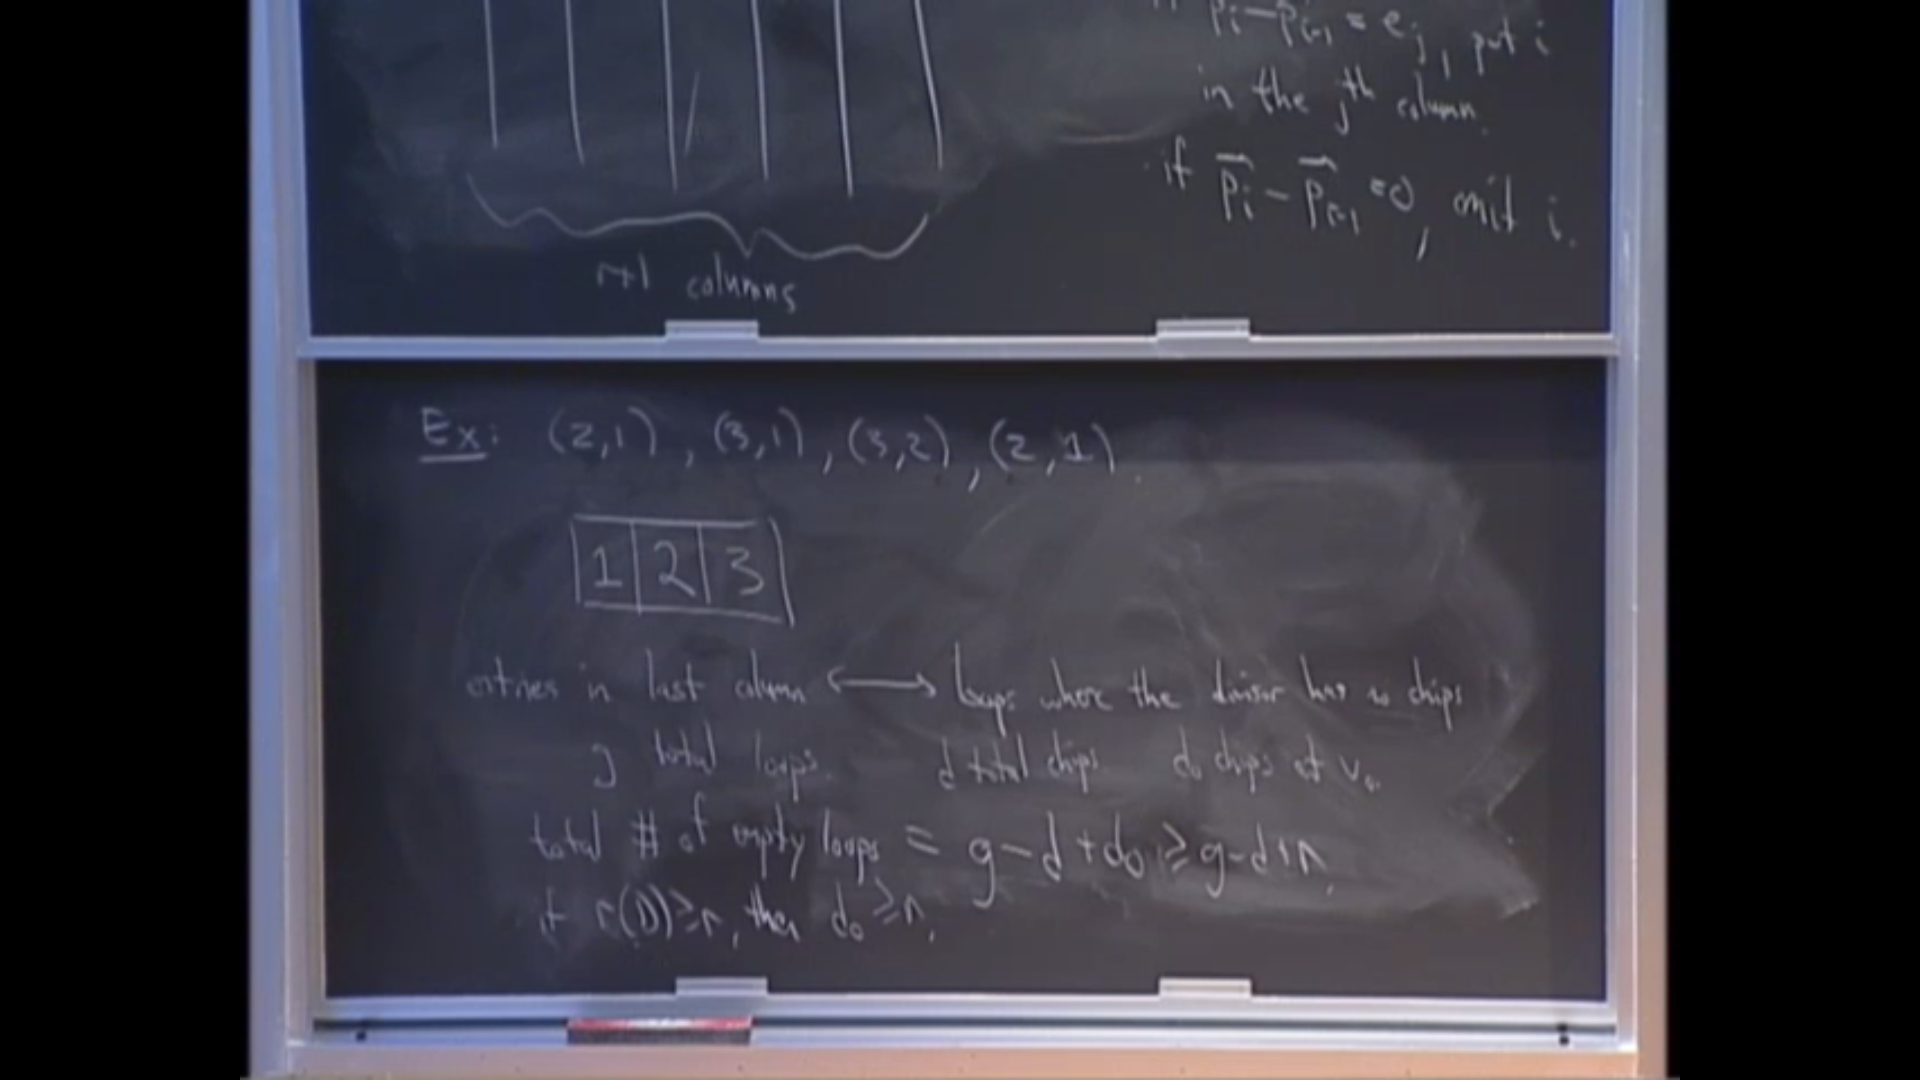 if p⃗i − p⃗i-1 = ej, put i
in the jth column.
if p⃗i − p⃗i-1 = 0, omit i.
r+1 columns
Ex: (2,1), (3,1), (3,2), (2,1).
1 2 3
entries in last column ⟷ loops where the divisor has no chips
g total loops. d total chips d0 chips at v0.
total # of empty loops = g-d+d0 ≥ g-d+r.
if r(D) ≥ r, then d0 ≥ r.